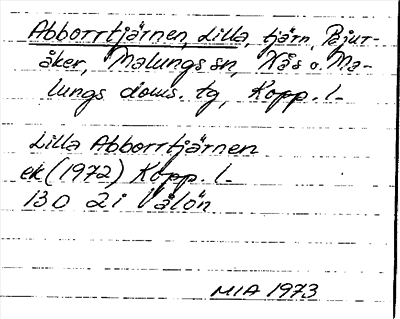 Abborrtjärnen, Lilla, tjärn, Bjur-
åker, Malungs sn, Nås o. Ma-
lungs doms. tg, Kopp. l.
Lilla Abborrtjärnen
ek (1972) Kopp. l.
13D 2i Vålön
MIA 1973